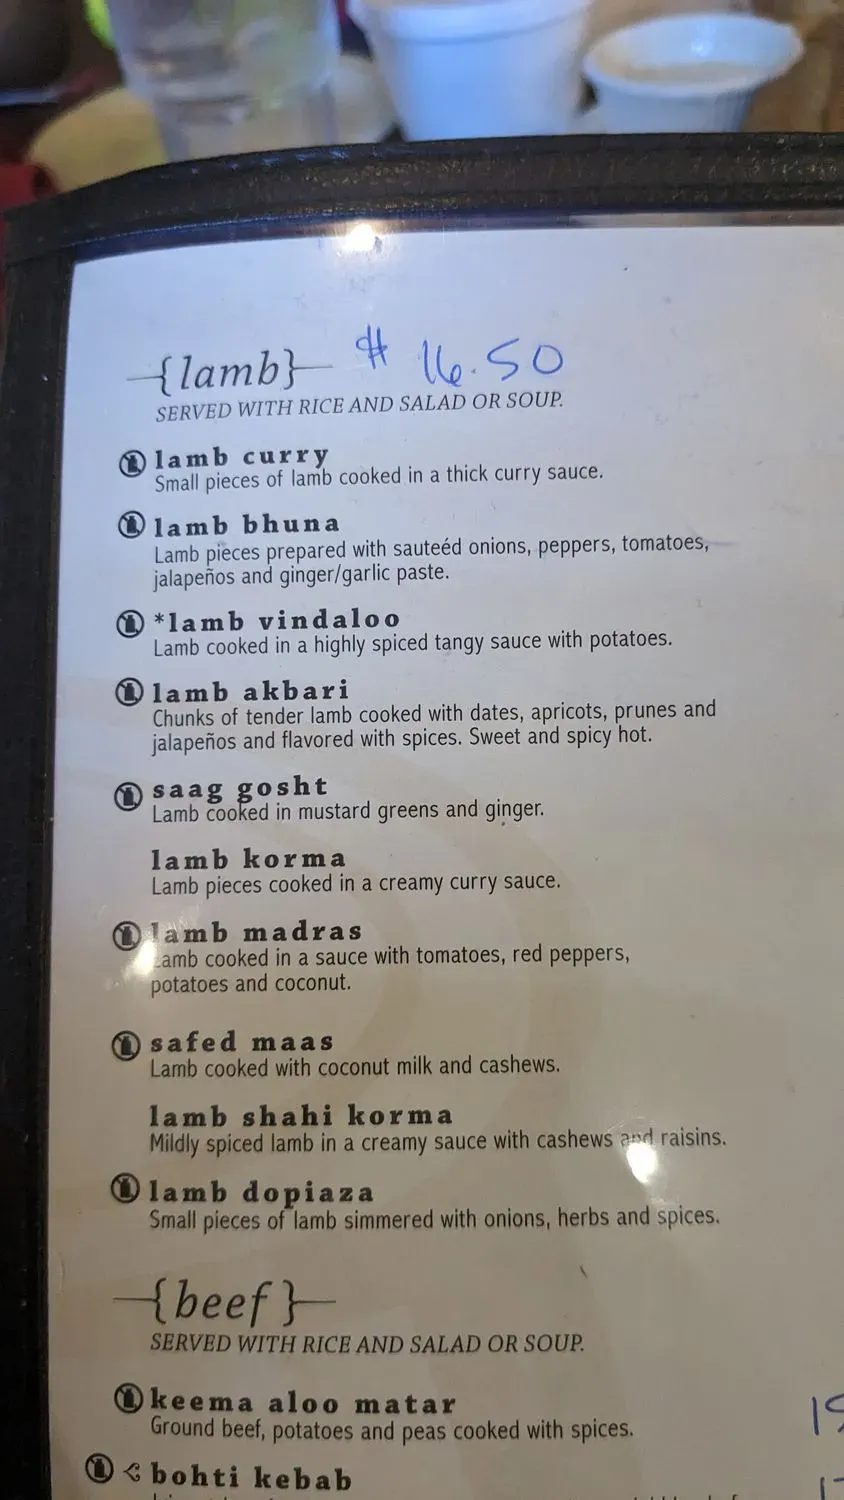 {lamb} $ 16.50
SERVED WITH RICE AND SALAD OR SOUP.
lamb curry
Small pieces of lamb cooked in a thick curry sauce.
lamb bhuna
Lamb pieces prepared with sauteéd onions, peppers, tomatoes,
jalapeños and ginger/garlic paste.
*lamb vindaloo
Lamb cooked in a highly spiced tangy sauce with potatoes.
lamb akbari
Chunks of tender lamb cooked with dates, apricots, prunes and
jalapeños and flavored with spices. Sweet and spicy hot.
saag gosht
Lamb cooked in mustard greens and ginger.
lamb korma
Lamb pieces cooked in a creamy curry sauce.
lamb madras
Lamb cooked in a sauce with tomatoes, red peppers,
potatoes and coconut.
safed maas
Lamb cooked with coconut milk and cashews.
lamb shahi korma
Mildly spiced lamb in a creamy sauce with cashews and raisins.
lamb dopiaza
Small pieces of lamb simmered with onions, herbs and spices.
{beef}
SERVED WITH RICE AND SALAD OR SOUP.
keema aloo matar
Ground beef, potatoes and peas cooked with spices.
bohti kebab